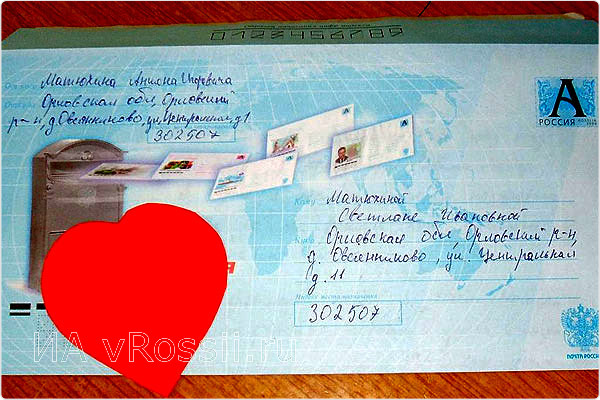 От кого Матюхина Антона Игоревича
Откуда Орловская обл, Орловский
р-н, д Овсянниково, ул. Центральная, д 1
302507
A
РОССИЯ
Кому Матюхиной
Светлане Ивановной
Куда Орловская обл, Орловский р-н,
д. Овсянниково, ул. Центральная
д. 11
Индекс места назначения
302507
ПОЧТА РОССИИ
ИА vRossii.ru